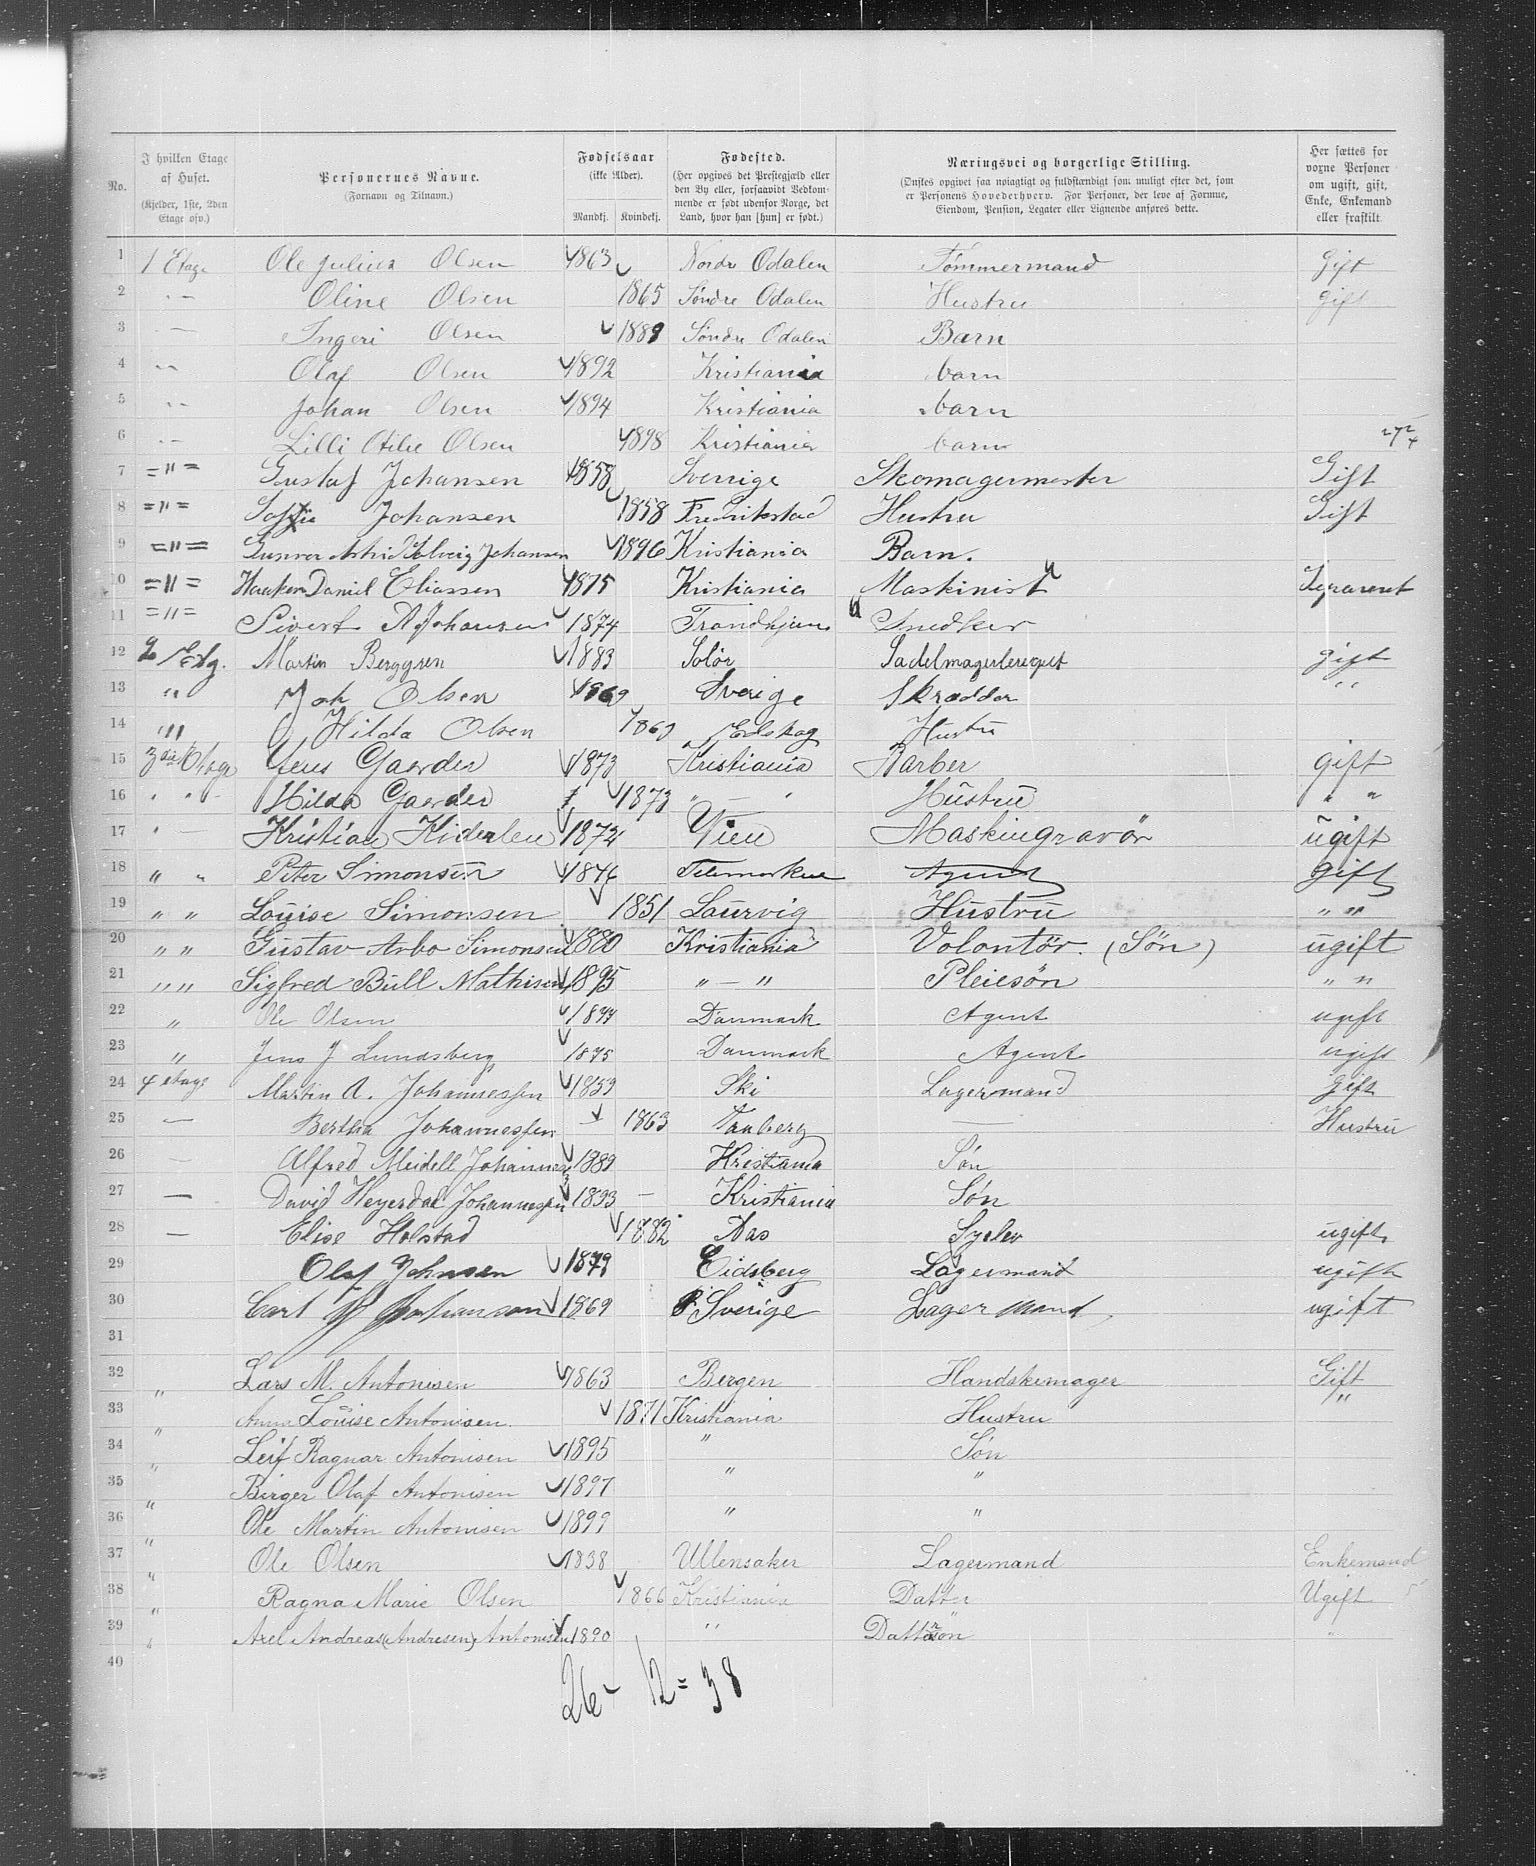 No.
I hvilken Etage af Huset. (Kjelder, 1ste, 2den Etage osv.)
Personernes Navne. (Fornavn og Tilnavn.)
Fødselsaar (ikke Alder). Mandkj. Kvindekj.
Fødested. (Her opgives det Prestegjæld eller den By eller, forsaavidt Vedkommende er født udenfor Norge, det Land, hvor han [hun] er født.)
Næringsvei og borgerlige Stilling. (Ønskes opgivet saa nøiagtigt og fuldstændigt som muligt efter det, som er Personens Hovederhverv. For Personer, der leve af Formue, Eiendom, Pension, Legater eller Lignende anføres dette.
Her sættes for voxne Personer om ugift, gift, Enke, Enkemand eller fraskilt.
1 1 Etage Ole Julius Olsen 1863 Nordre Odalen Tømmermand Gift
2 -"- Oline Olsen 1865 Søndre Odalen Hustru gift
3 — Ingeri Olsen 1889 Søndre Odalen Barn
4 -"- Olaf Olsen 1892 Kristiania barn
5 -"- Johan Olsen 1894 Kristiania barn
6 -"- Lilli Otilie Olsen 1898 Kristiania barn
7 ="= Gustaf Johansen 1858 Sverrige Skomagermester Gift
8 ="= Sofie Johansen 1858 Fredrikstad Hustru Gift
9 ="= Gunvor Astrid Solveig Johansen 1896 Kristiania Barn.
10 ="= Haakon Daniel Eliassen 1875 Kristiania Maskinist Separeret
11 ="= Sivert A Johansen 1874 Trondhjem Snedker
12 2 Etg. Martin Berggren 1883 Solør Sadelmagerlerergut gift
13 " Joh Olsen 1869 Sverige Skrædder "
14 "' Hilda Olsen 186 Eidskog Hustru
15 3die Etage Jens Gaarder 1873 Kristiania Barber gift
16 " " Hilda Gaarder 1873 " — " Hustru " "
17 " — Kristian Kiderlen 1874 Wien Maskingravør ugift
18 " " Peter Simonsen 1846 Telemarken Agent gift
19 " " Louise Simonsen 1851 Laurvig Hustru " "
20 " " Gustav Arbo Simonsen 1880 Kristiania Volontør. (Søn) ugift
21 " " Sigfred Bull Mathisen 1895 " — " Pleiesøn " "
22 " Ole Olsen 1844 Danmark Agent ugift
23 " Jens J Lundsberg 1875 Danmark Agent ugift
24 4 etage Martin A. Johannessen 1859 Ski Lagermand gift
25 — Bertha Johannessen — 1863 Tanberg Hustru
26 — Alfred Meidell Johannes 1889 Kristiania Søn
27 — David Heyerdal Johannessen 1893 — Kristiania Søn
28 — Elise Holstad 1882 Aas Syelev ugift
29 Olaf Johnsen 1879 Eidsberg Lagermand ugift
30 Carl Johanson 1869 Sverige Lagermand ugift
31
32 " Lars M. Antonisen 1863 Bergen Handskemager Gift
33 " Anna Louise Antonisen. 1871 Kristiania Hustru "
34 " Leif Ragnar Antonisen 1895 " Søn
35 " Birger Olaf Antonisen 1897 " "
36 " Ole Martin Antonisen 1899 " "
37 " Ole Olsen 1838 Ullensaker Lagermand Enkemand
38 " Ragna Marie Olsen 1866 Kristiania Datter Ugift
39 " Axel Andreas (Andresen) Antonisen 1890 " Dattersøn "
40
26 - 12 = 38